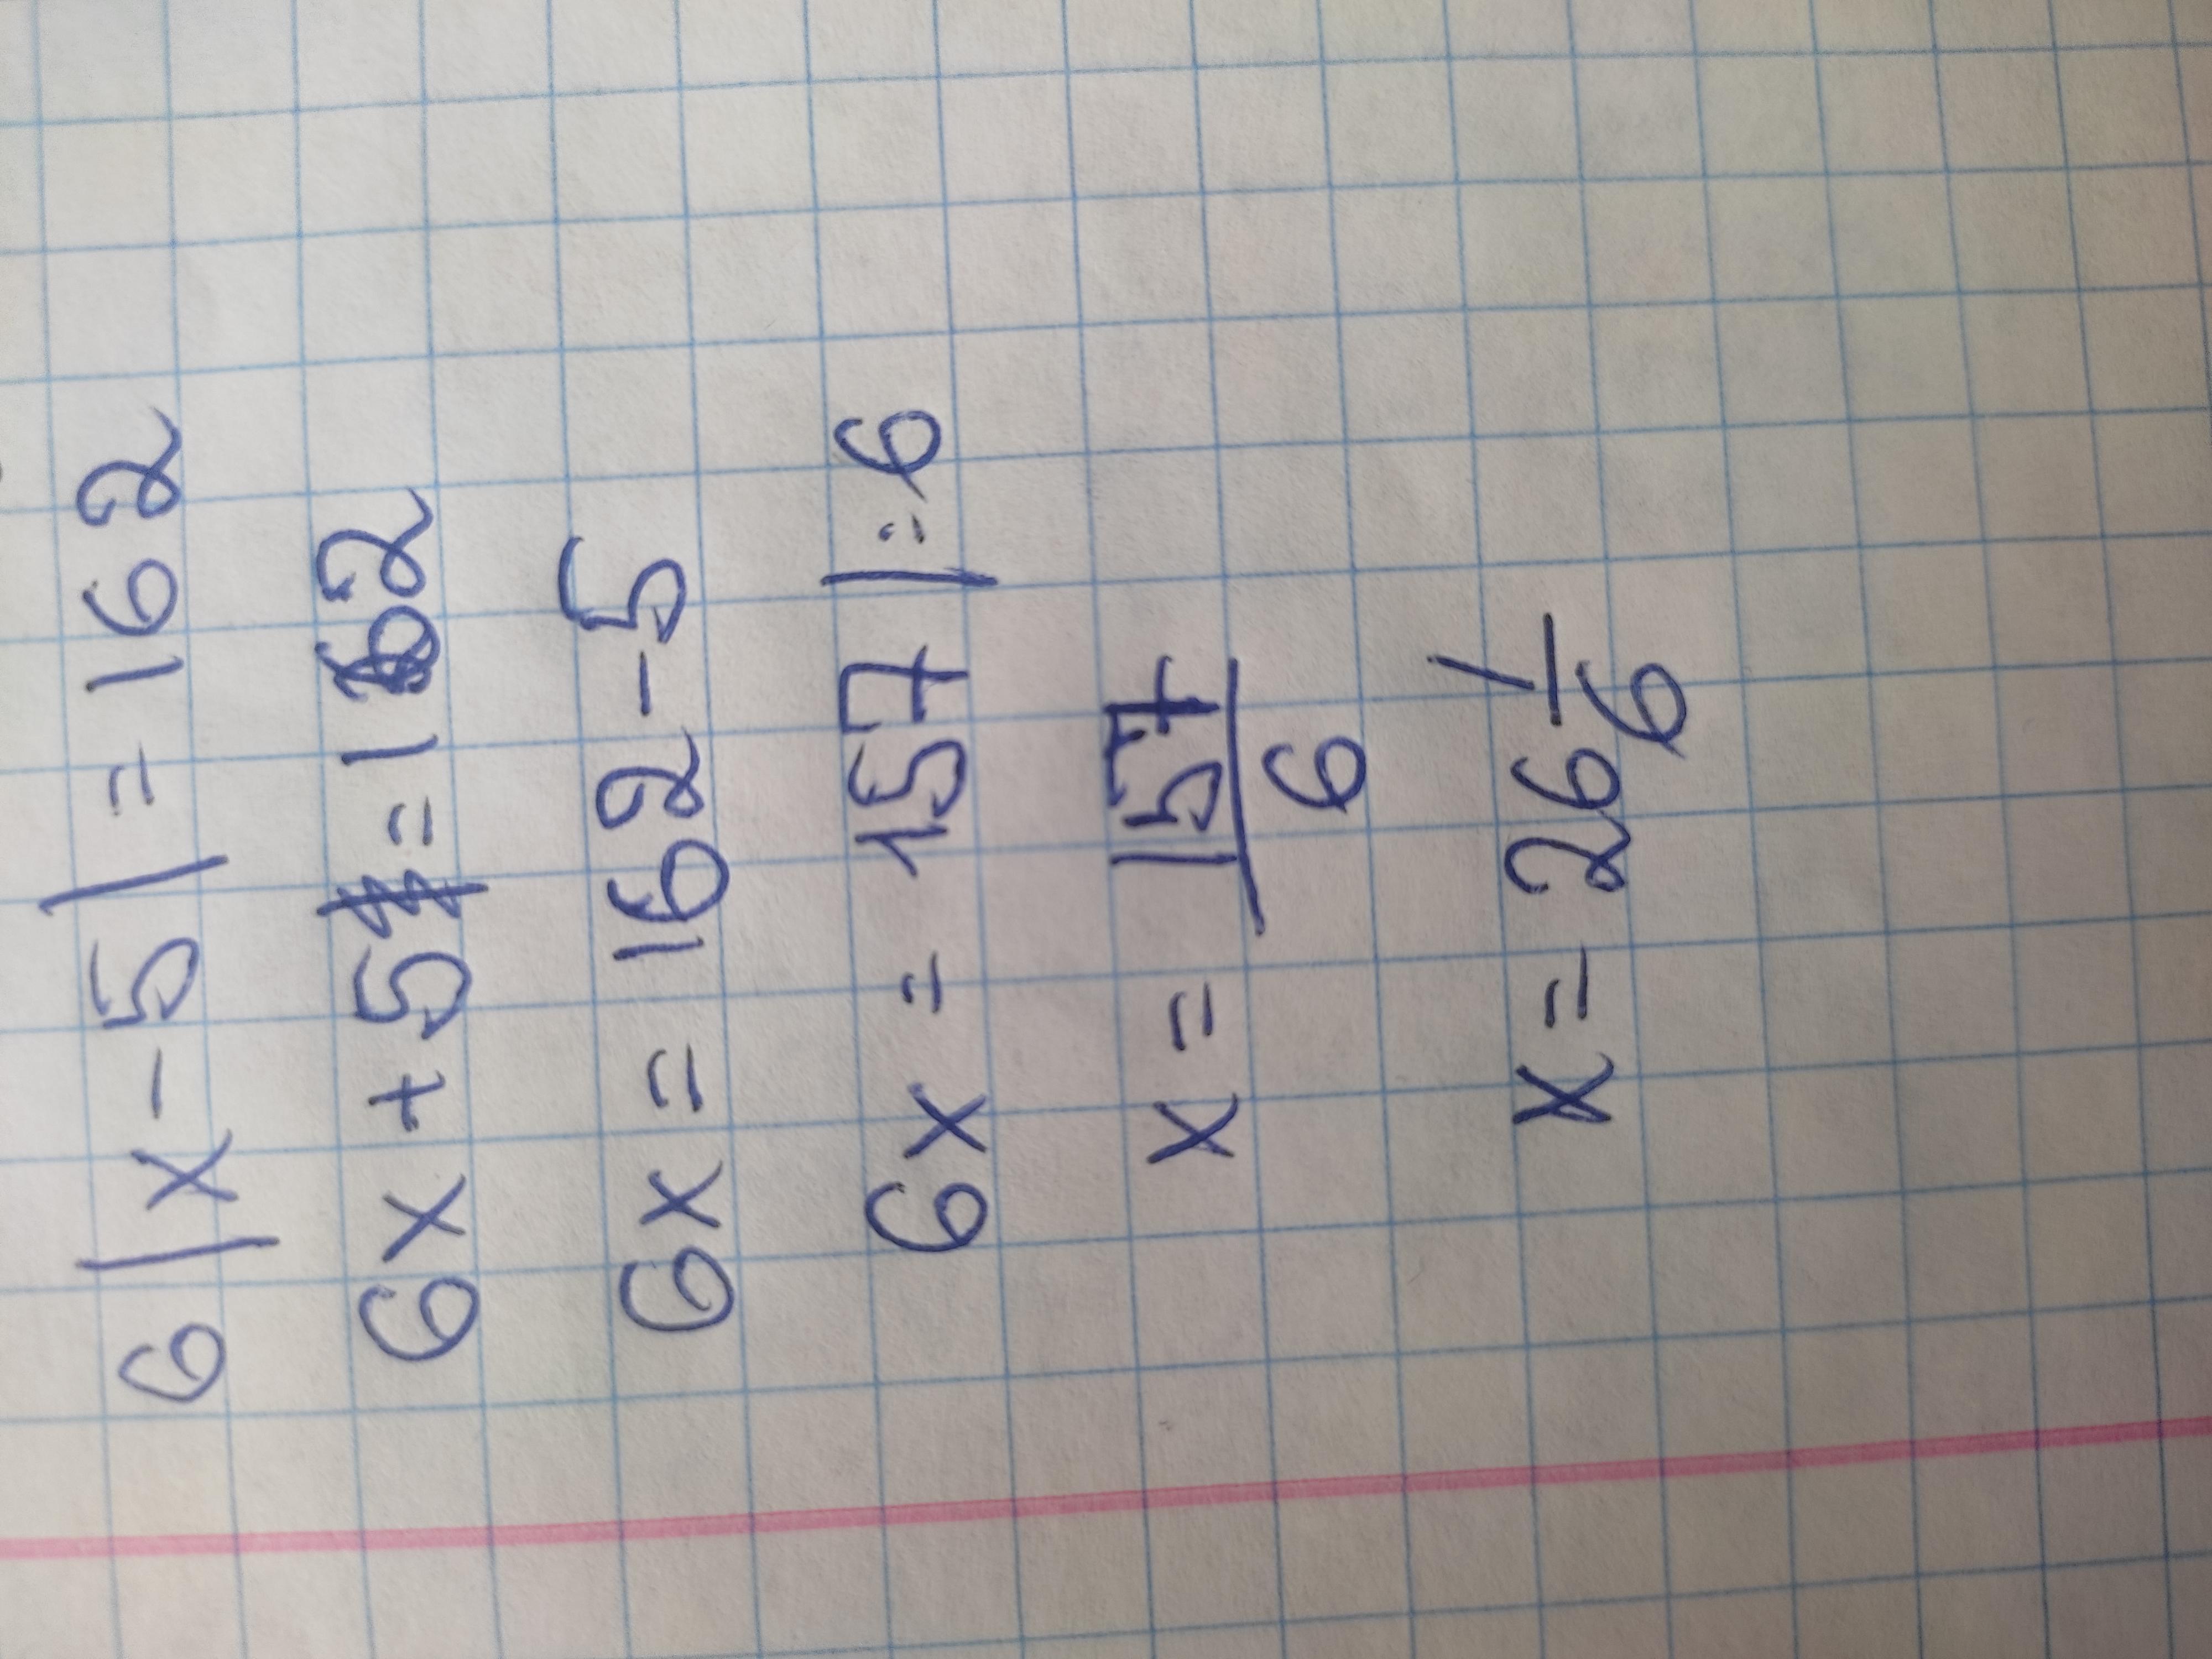 6|x-5|=162
6x+5=162
6x=162-5
6x=157|:6
x=157/6
x=26 1/6